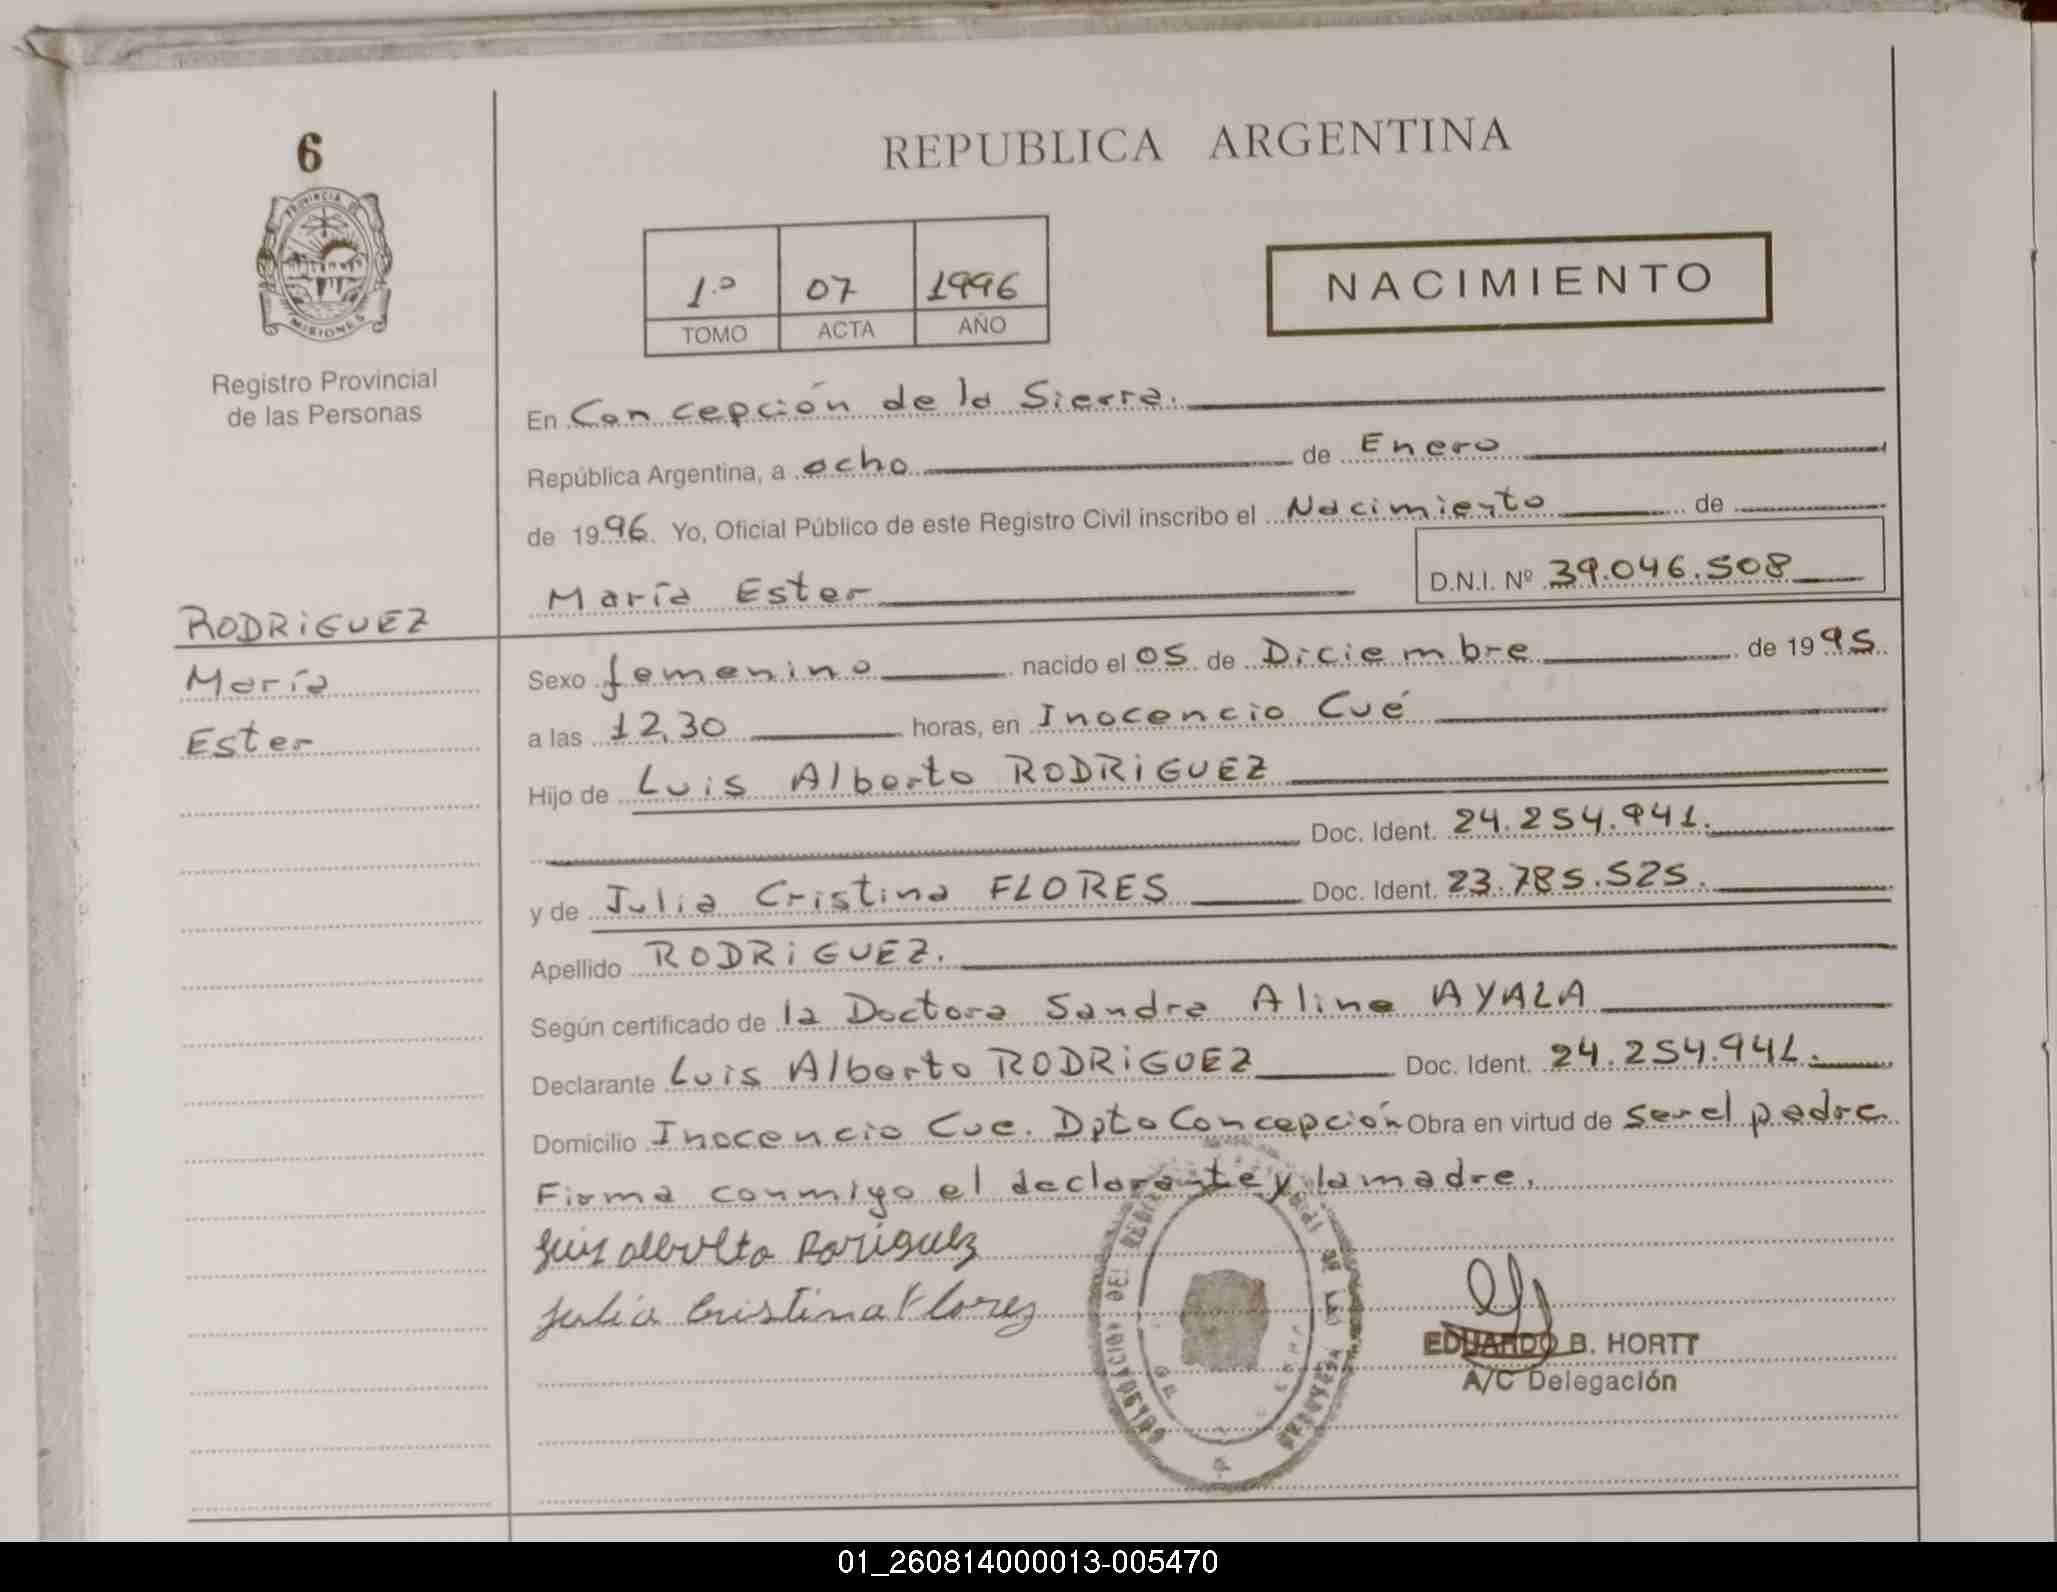 6
PROVINCIA DE
MISIONES
Registro Provincial
de las Personas
RODRIGUEZ
María
Ester
REPUBLICA ARGENTINA
1.º 07 1996
TOMO ACTA AÑO
NACIMIENTO
En Concepción de la Sierra.
República Argentina, a ocho de Enero
de 1996. Yo, Oficial Público de este Registro Civil inscribo el Nacimiento de
María Ester D.N.I. Nº 39.046.508
Sexo femenino nacido el 05 de Diciembre de 1995
a las 12,30 horas, en Inocencio Cué
Hijo de Luis Alberto RODRIGUEZ
Doc. Ident. 24.254.941.
y de Julia Cristina FLORES Doc. Ident. 23.785.525.
Apellido RODRIGUEZ.
Según certificado de la Doctora Sandra Alina AYALA
Declarante Luis Alberto RODRIGUEZ Doc. Ident. 24.254.941.
Domicilio Inocencio Cue. Dpto Concepción Obra en virtud de ser el padre
Firma conmigo el declarante y la madre.
Luis Alberto Roriguez
Julia Cristina Flores
EDUARDO B. HORTT
A/C Delegación
01_260814000013-005470